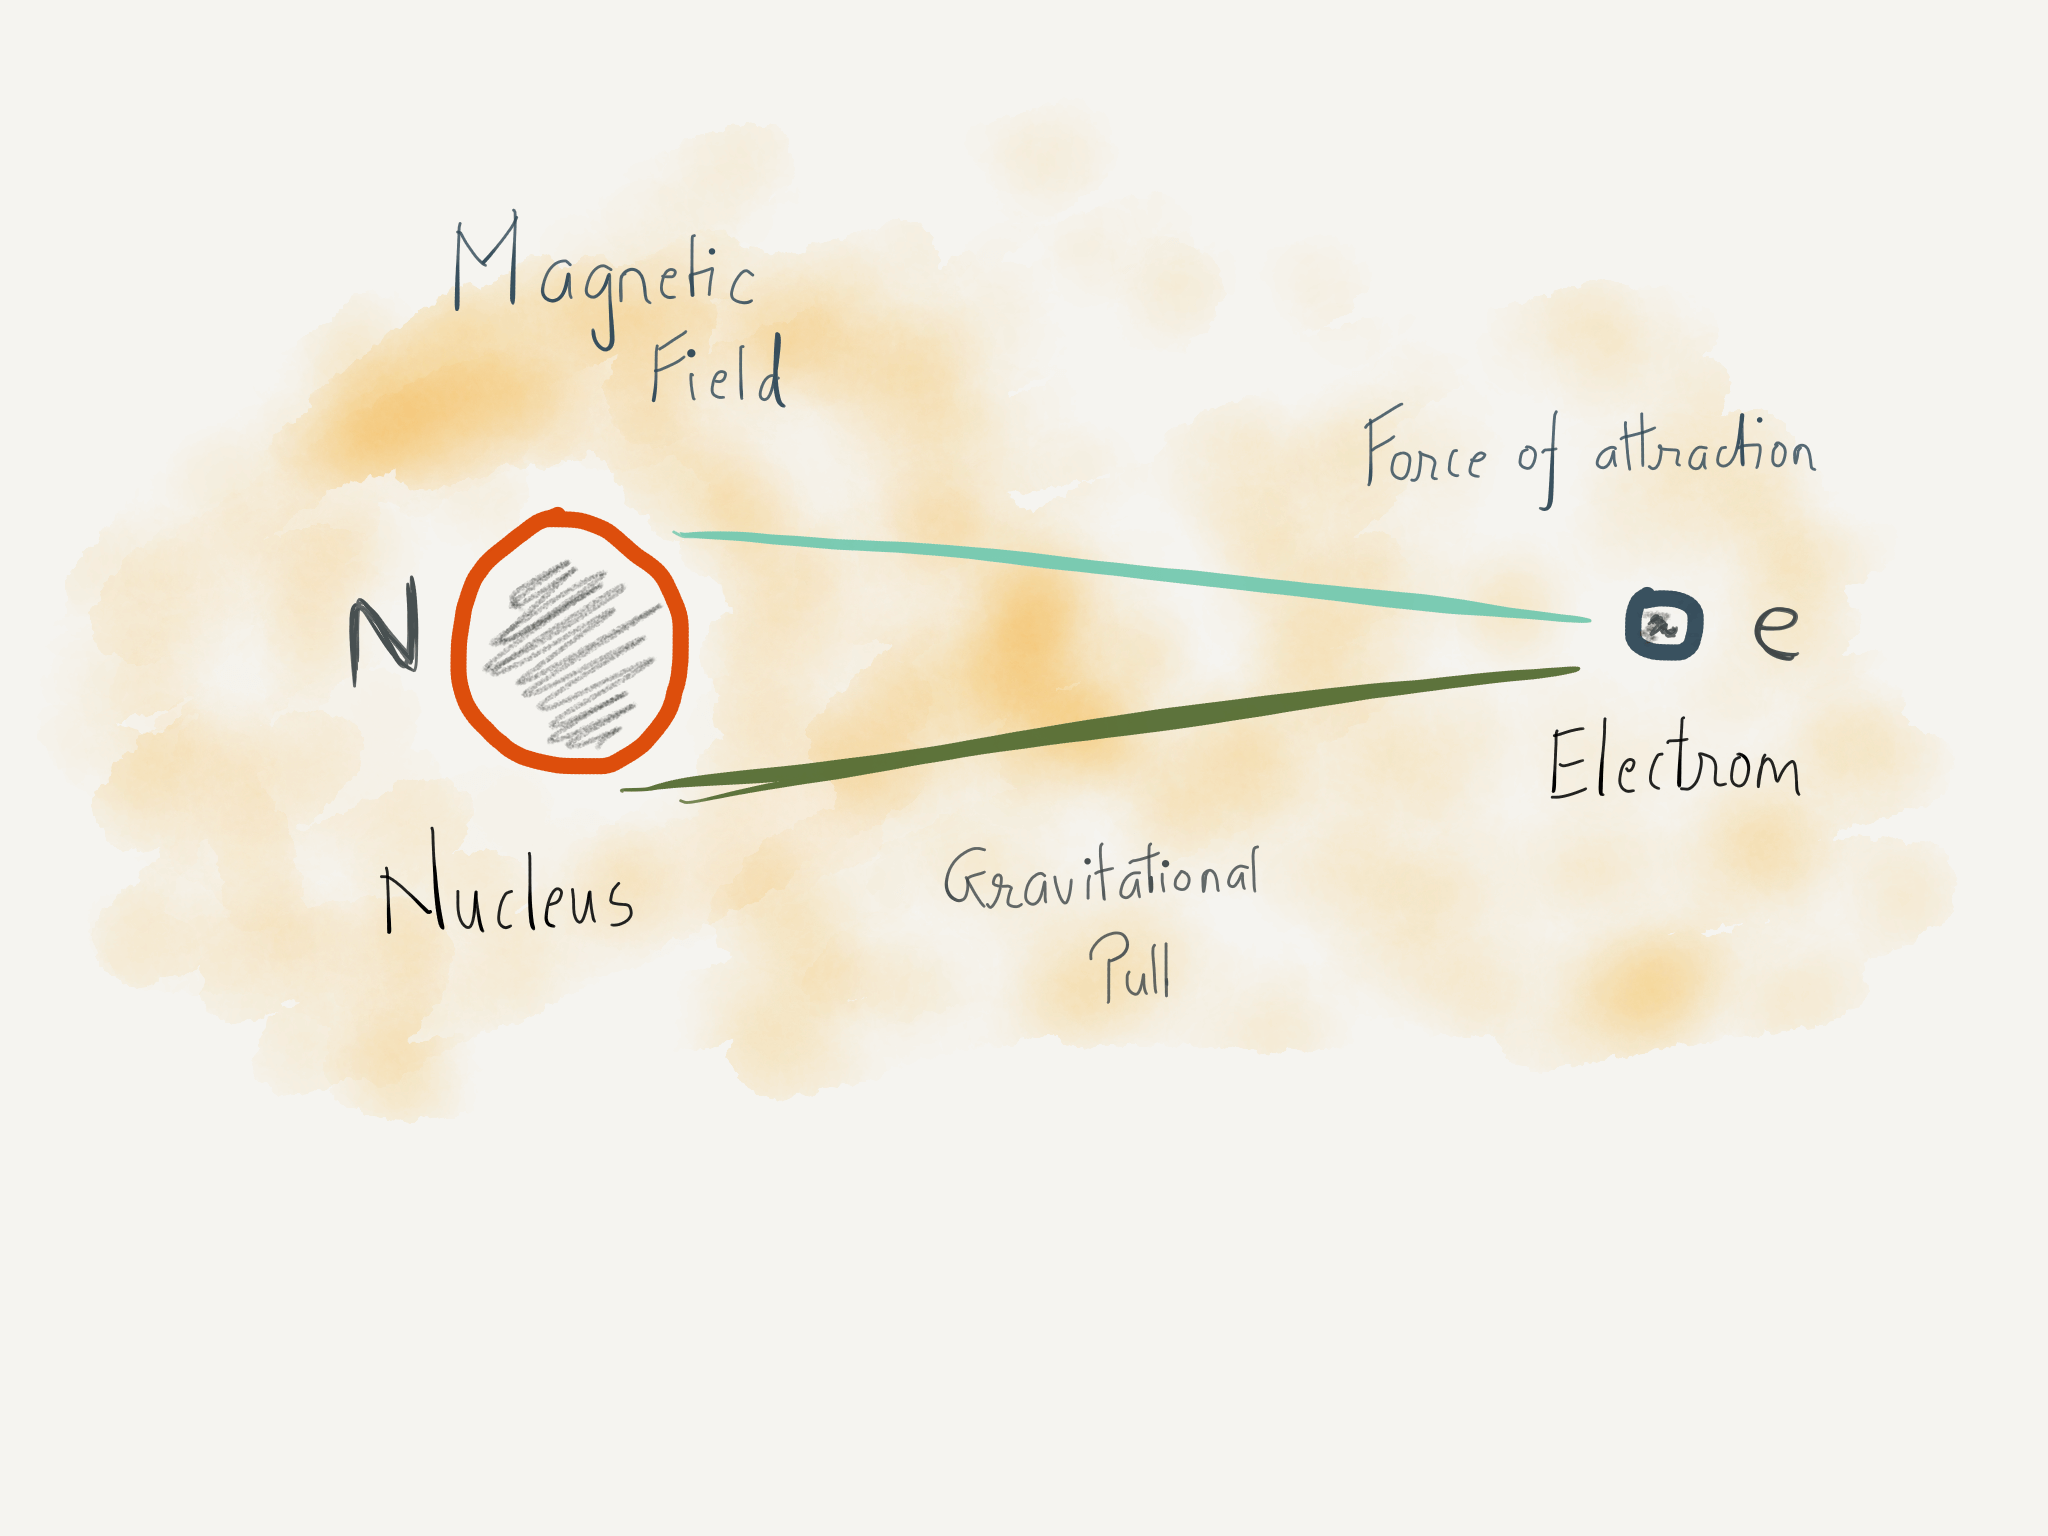 Magnetic
Field
Force of attraction
N
e
Electrom
Nucleus
Gravitational
Pull